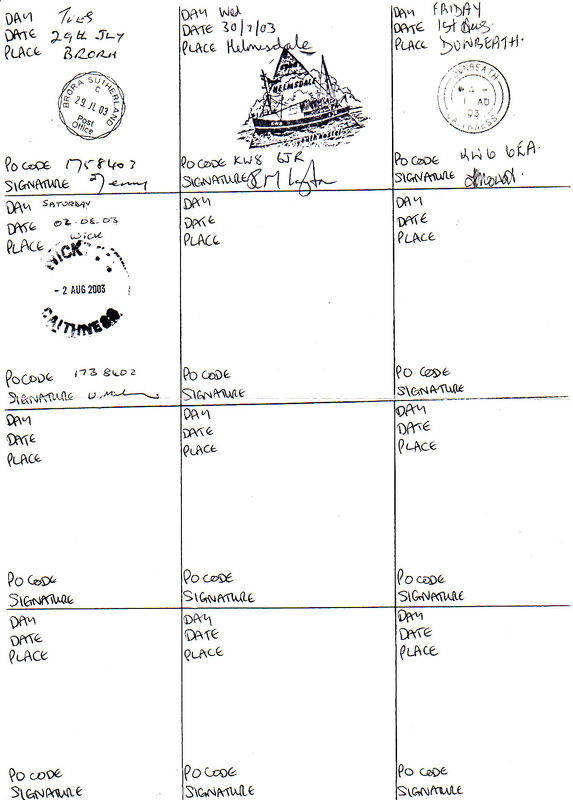 DAY Tues
DATE 29th JLY
PLACE BRORA
BRORA SUTHERLAND
C
29 JL 03
Post
Office
PO CODE 1758403
SIGNATURE
DAY Wed
DATE 30/7/03
PLACE Helmsdale
HELMSDALE
PO CODE KW8 6JR
SIGNATURE
DAY FRIDAY
DATE 1st Aug
PLACE DUNBEATH.
DUNBEATH
1 AU
03
CAITHNESS
PO CODE KW6 6EA.
SIGNATURE
DAY SATURDAY
DATE 02-08-03
PLACE WICK
WICK
- 2 AUG 2003
CAITHNESS
PO CODE 1738402
SIGNATURE
DAY
DATE
PLACE
PO CODE
SIGNATURE
DAY
DATE
PLACE
PO CODE
SIGNATURE
DAY
DATE
PLACE
PO CODE
SIGNATURE
DAY
DATE
PLACE
PO CODE
SIGNATURE
DAY
DATE
PLACE
PO CODE
SIGNATURE
DAY
DATE
PLACE
PO CODE
SIGNATURE
DAY
DATE
PLACE
PO CODE
SIGNATURE
DAY
DATE
PLACE
PO CODE
SIGNATURE